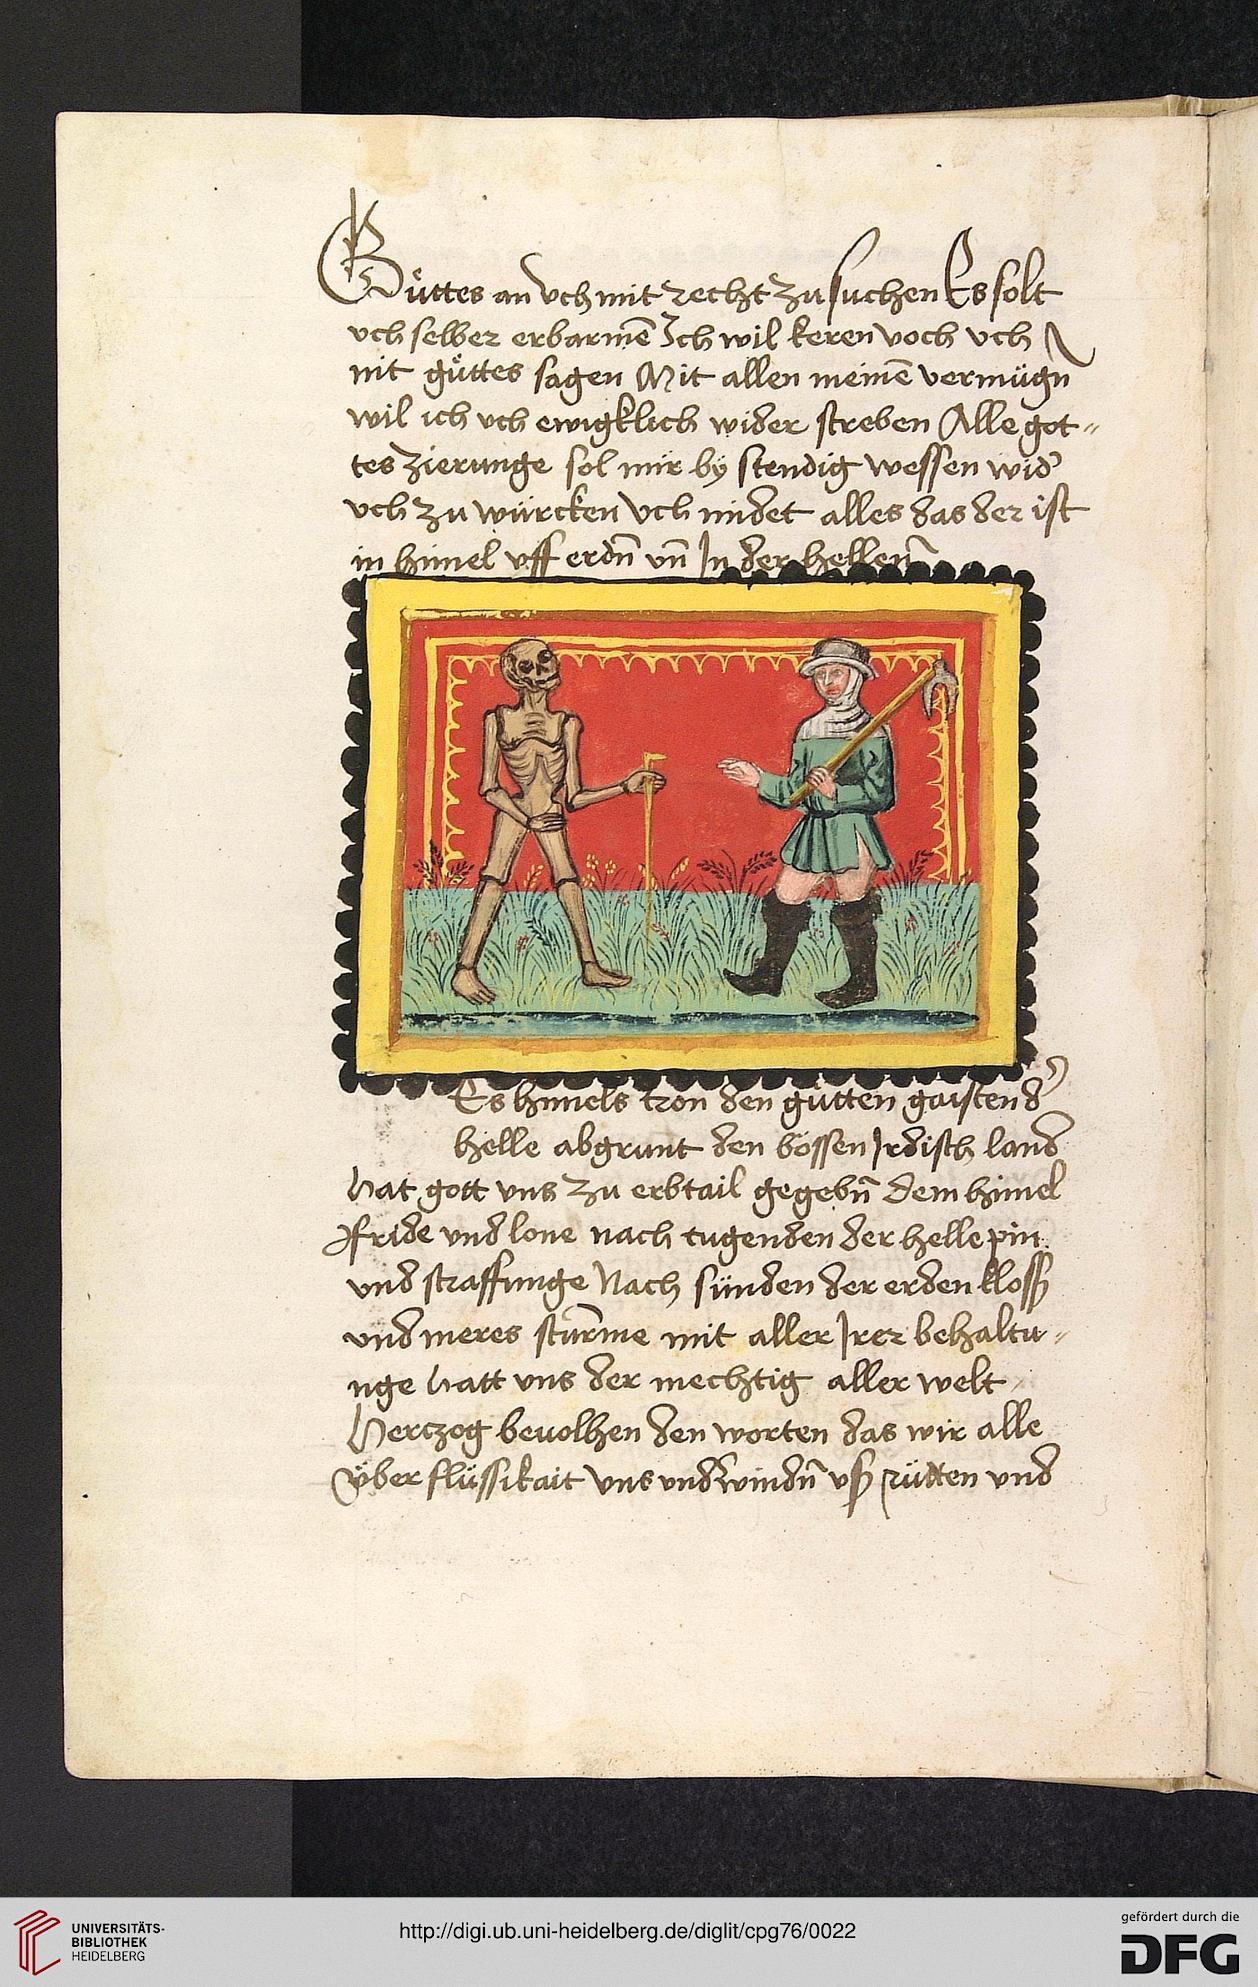 Gůttes an vch mit recht zu suchen Es solt
vch selber erbarmē Ich wil keren voch vch
nit gůttes sagen Mit allen meinē vermügn
wil ich vch ewigklich wider streben Alle got-
tes zierunge sol mir by stendig wessen wid
vch zu würcken vch nidet alles das der ist
in himel vff erdn̄ vn̄ In der hellen
Es himels tron den gůtten gaisten d
helle abgrunt den bössen Irdisch land
Hat gott vns zu erbtail gegebn̄ Dem himel
fride vnd lone nach tugenden der helle pin
vnd straffunge Nach sünden der erden kloss
vnd meres sturme mit aller Irer behaltu-
nge Hatt vns der mechtig aller welt
Herczog beuolhen den worten das wir alle
Über flüssikait vns vnd windn̄ vß rütten vnd
UNIVERSITÄTS-
BIBLIOTHEK
HEIDELBERG
http://digi.ub.uni-heidelberg.de/diglit/cpg76/0022
gefördert durch die
DFG